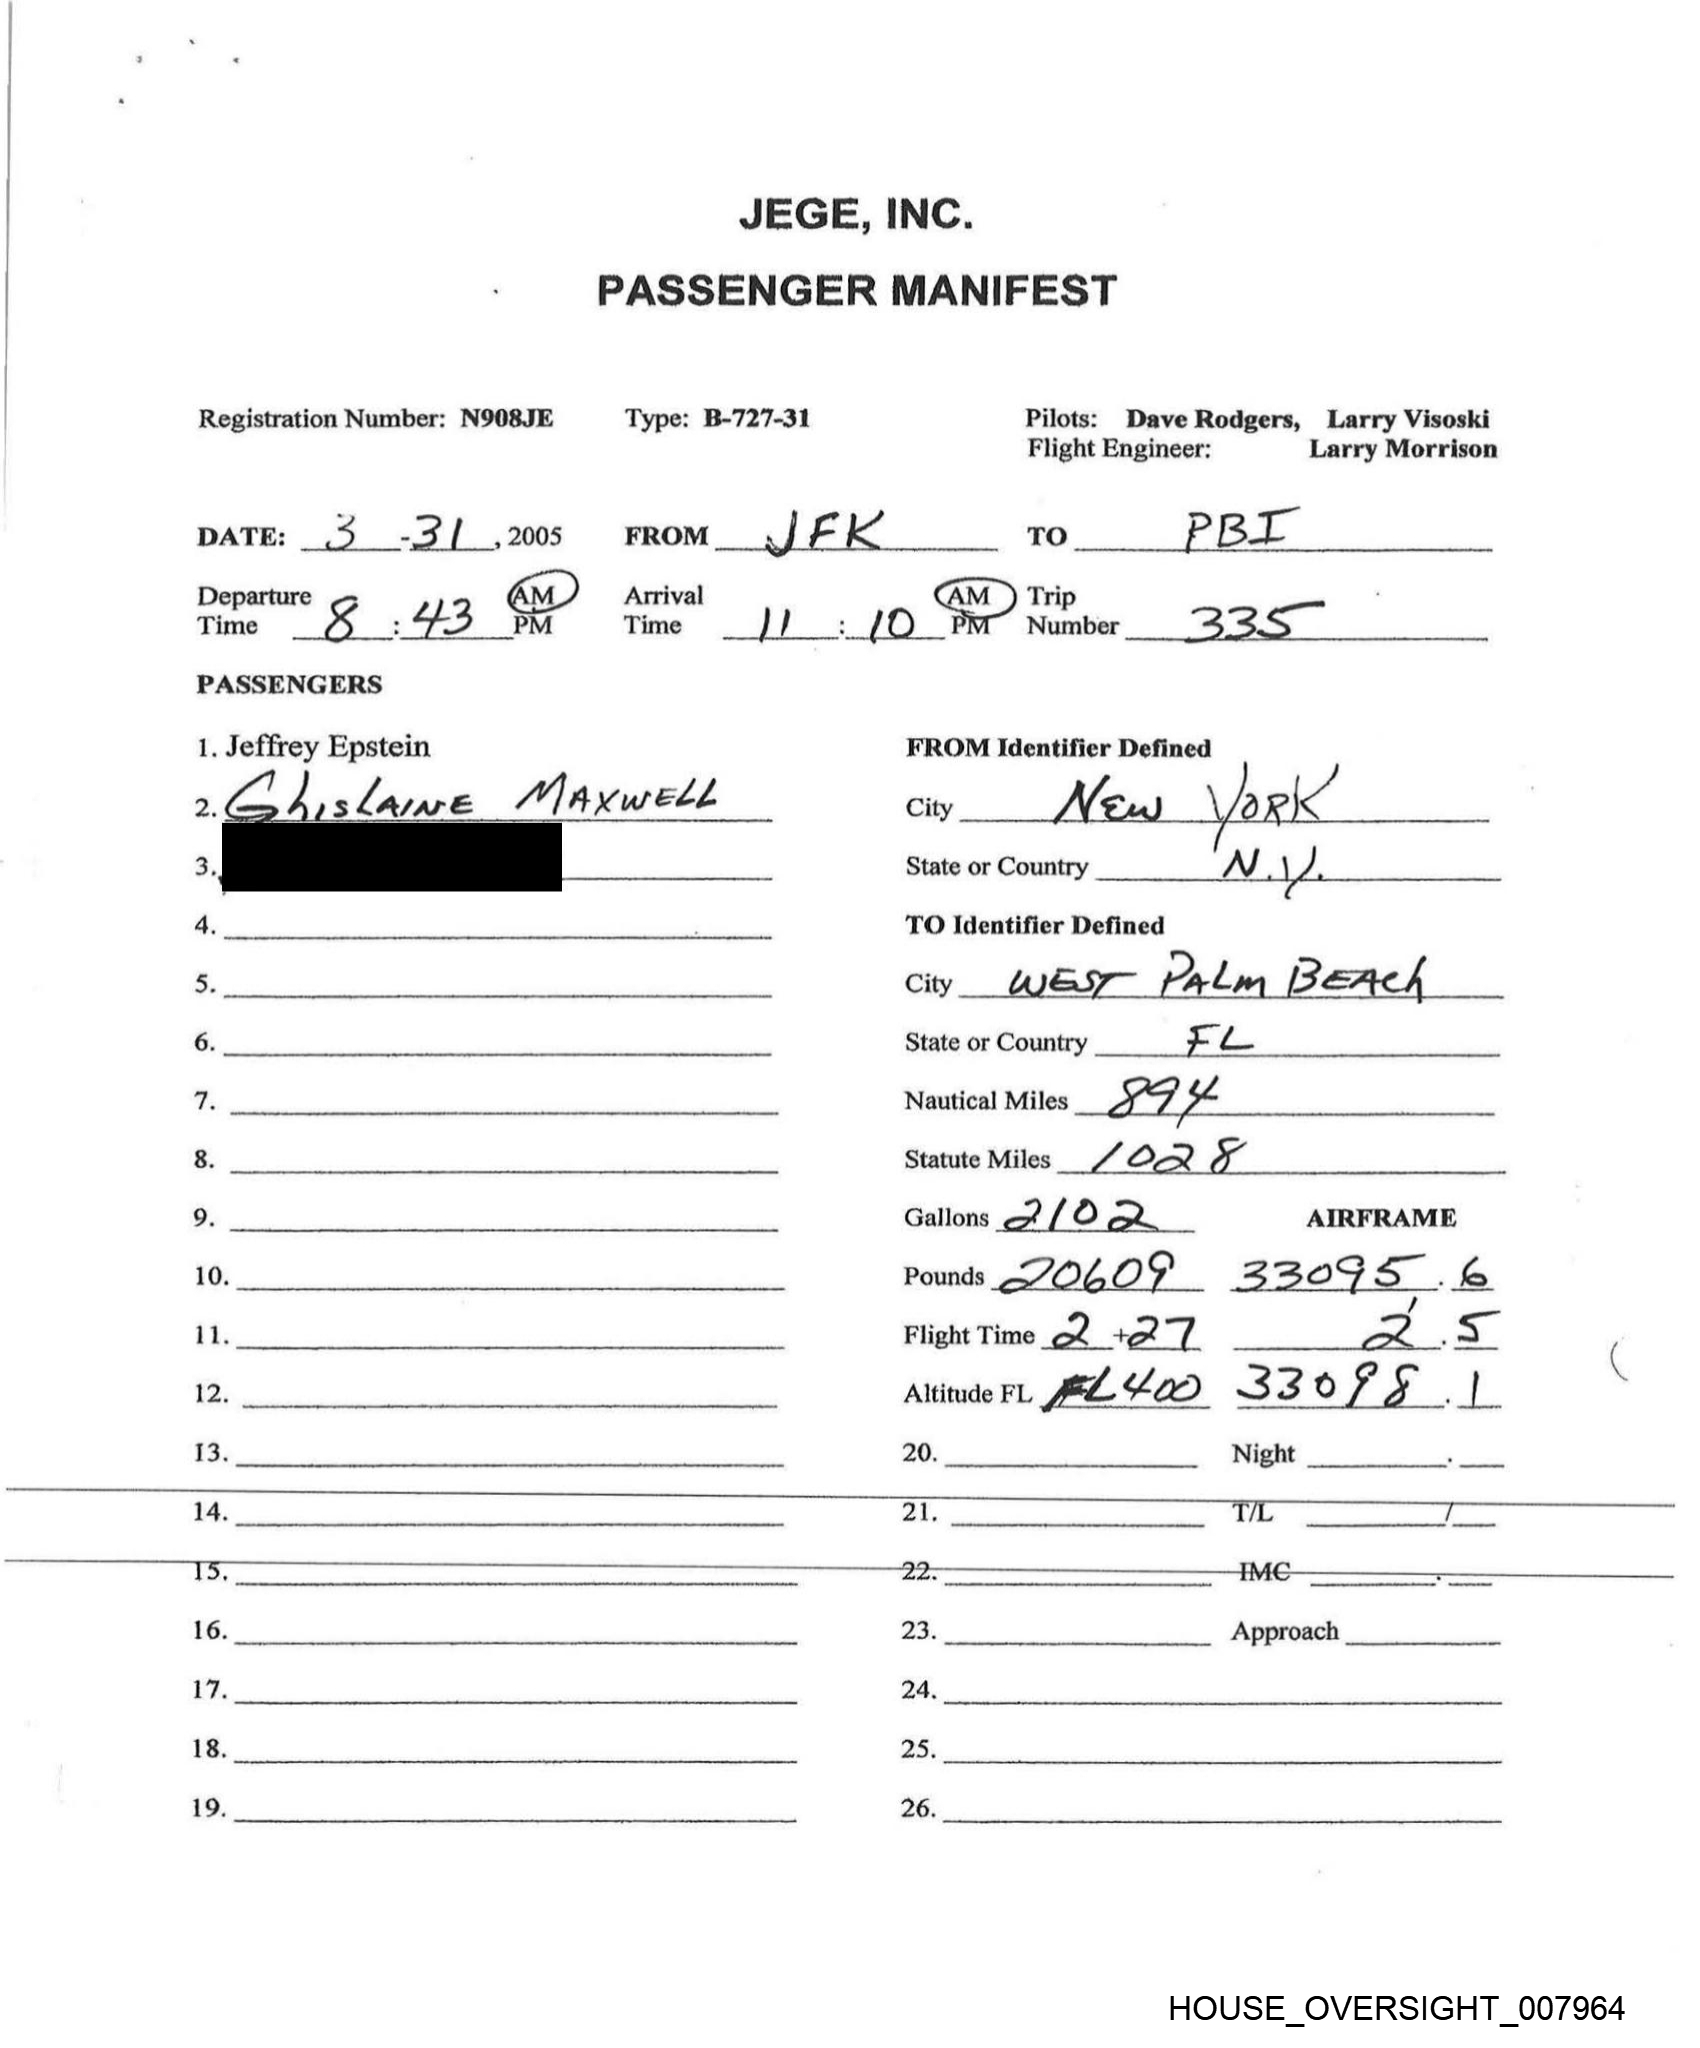 JEGE, INC.
PASSENGER MANIFEST
Registration Number: N908JE Type: B-727-31 Pilots: Dave Rodgers, Larry Visoski
Flight Engineer: Larry Morrison
DATE: 3 -31, 2005 FROM JFK TO PBI
Departure Time 8 : 43 AM PM Arrival Time 11 : 10 AM PM Trip Number 335
PASSENGERS
1. Jeffrey Epstein FROM Identifier Defined
2. GhisLAINE MAXWELL City NEW YORK
3. State or Country N.Y.
4. TO Identifier Defined
5. City WEST PALM BEACh
6. State or Country FL
7. Nautical Miles 894
8. Statute Miles 1028
9. Gallons 2102 AIRFRAME
10. Pounds 20609 33095.6
11. Flight Time 2 +27 2.5
12. Altitude FL FL400 33098.1
13. 20. Night .
14. 21. T/L /
15. 22. IMC .
16. 23. Approach
17. 24.
18. 25.
19. 26.
HOUSE_OVERSIGHT_007964